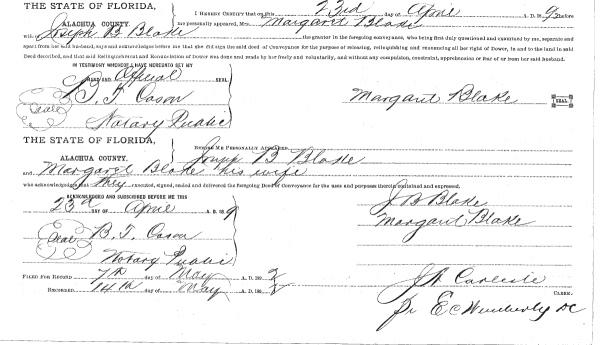 THE STATE OF FLORIDA, I HEREBY CERTIFY that on this 23rd day of April A. D. 189 before
ALACHUA COUNTY. me personally appeared, Mrs. Margaret Blake
wife Joseph B Blake the grantor in the foregoing conveyance, who being first duly questioned and examined by me, separate and
apart from her said husband, says and acknowledges before me that she did sign the said deed of Conveyance for the purpose of releasing, relinquishing and renouncing all her right of Dower, in and to the land in said
Deed described, and that said Relinquishment and Renunciation of Dower was done and made by her freely and voluntarily, and without any compulsion, constraint, apprehension or fear of or from her said husband.
IN TESTIMONY WHEREOF I HAVE HEREUNTO SET MY
HAND AND Official SEAL
B. F. Cason
Seal
Notary Public
Margaret Blake SEAL
THE STATE OF FLORIDA, BEFORE ME PERSONALLY APPEARED Joseph B Blake
ALACHUA COUNTY.
and Margaret Blake his wife
who acknowledges that they executed, signed, sealed and delivered the foregoing Deed of Conveyance for the uses and purposes therein contained and expressed.
ACKNOWLEDGED AND SUBSCRIBED BEFORE ME THIS
23d DAY OF April A. D. 189
J B Blake
Margaret Blake
Seal B. F. Cason
Notary Public
FILED FOR RECORD 7th day of May A. D. 189 2
RECORDED 14th day of May A. D. 189 2
J A Carlisle CLERK.
Pr E C Wimberly DC